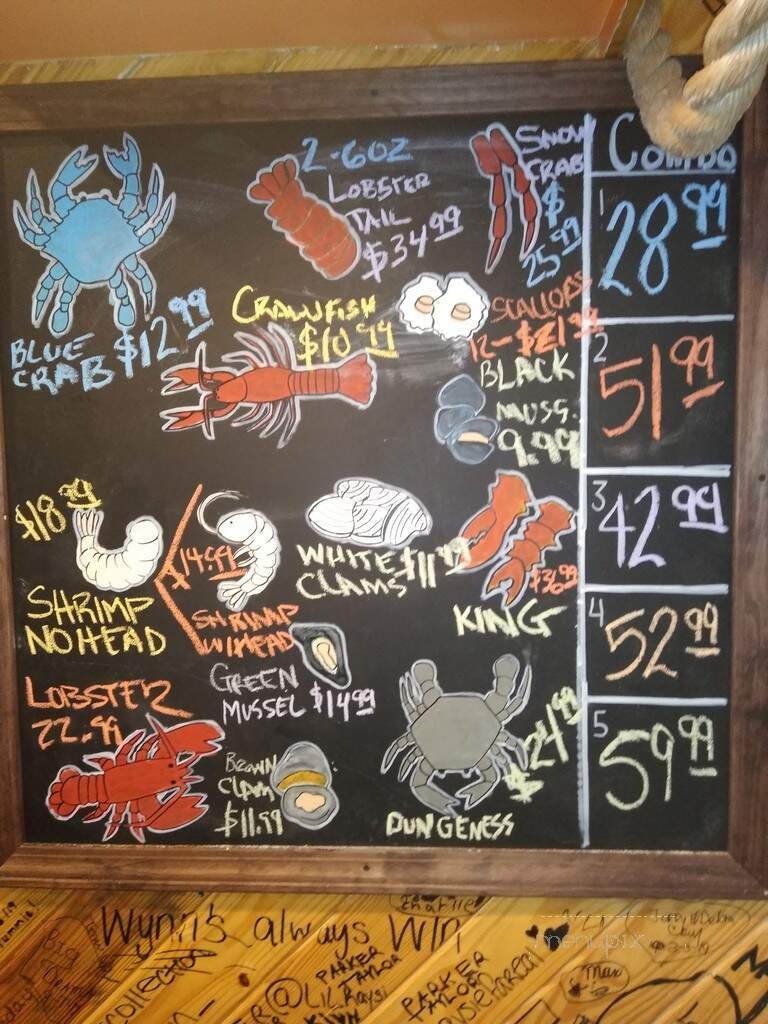 2-6oz
LOBSTER
TAIL
$34.99
SNOW
CRAB
$
25.99
Combo
1 28.99
BLUE
CRAB $12.99
CRAWFISH
$10.99
SCALLOPS
12-$21.99
BLACK
MUSS.
9.99
2 51.99
$18.99
SHRIMP
NO HEAD
$14.99
SHRIMP
W/HEAD
WHITE $11.99
CLAMS
$36.99
KING
3 42.99
4 52.99
GREEN
MUSSEL $14.99
LOBSTER
22.99
BROWN
CLAM
$11.99
$24.99
DUNGENESS
5 59.99
Wynn's always Win
collection
PARKER
TAYLOR
@LiL Raysi
PARKER
TAYLOR
Max
menupix